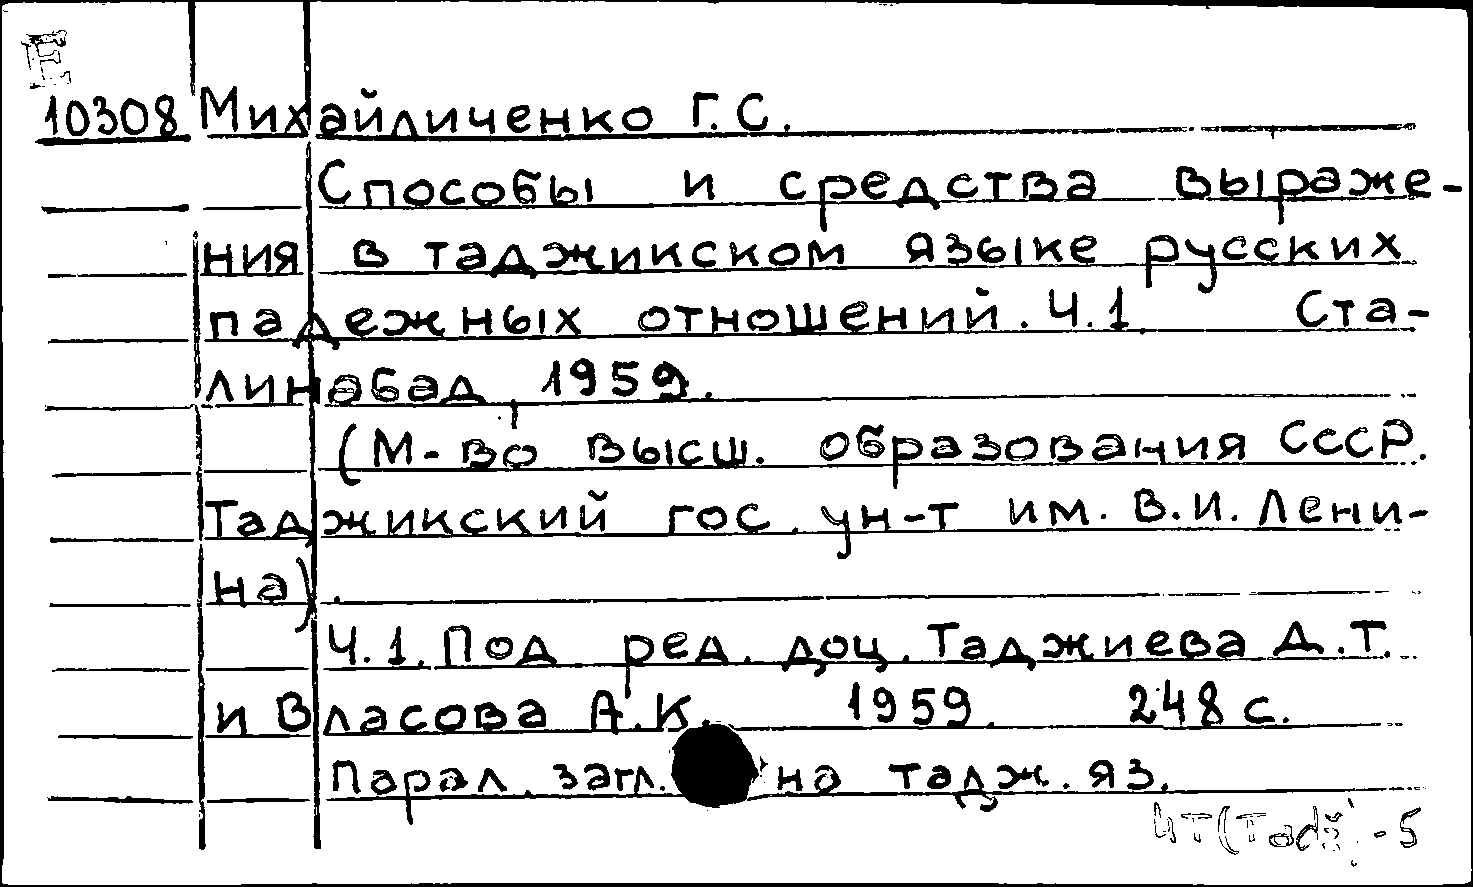 E
10308 Михайличенко Г.С.
Способы и средства выраже-
ния в таджикском языке русских
падежных отношений. Ч.1. Ста-
линабад, 1959.
(М-во высш. образования СССР.
Таджикский гос. ун-т им. В.И. Лени-
на).
Ч.1. Под ред. доц. Таджиева Д.Т.
и Власова А.К. 1959. 248 с.
Парал. загл. на тадж. яз.
4Т(Tadž) - 5